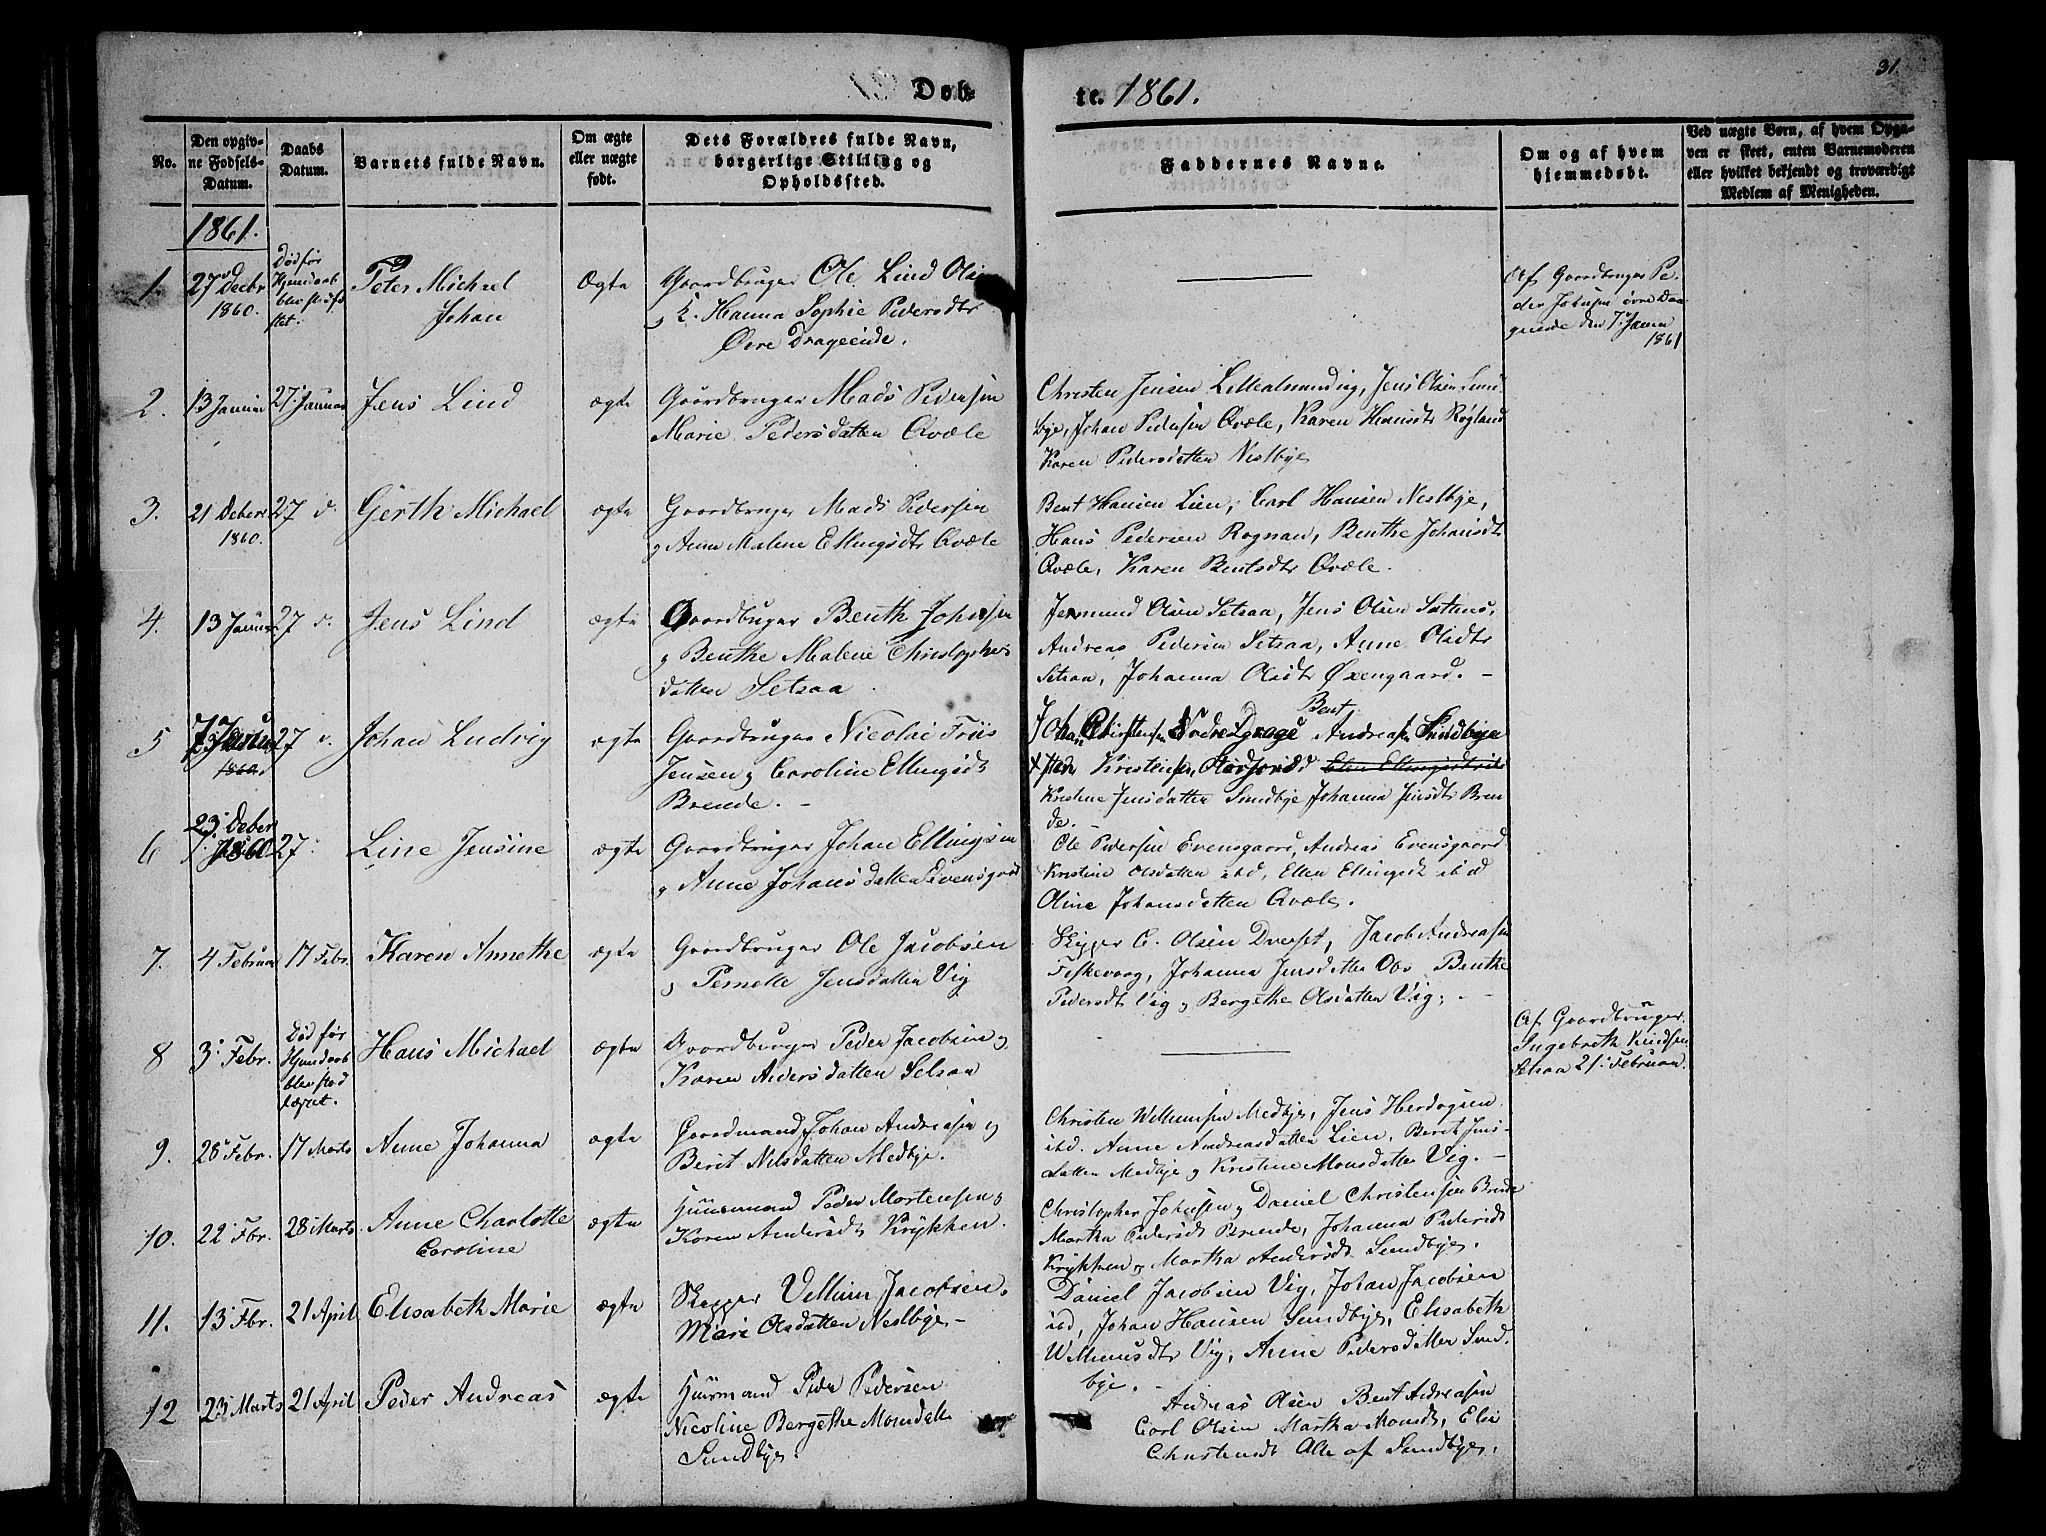 31.
Døb-
te. 1861.
No.
Den opgiv-
ne Fødsels-
Datum.
Daabs
Datum.
Barnets fulde Navn.
Om ægte
eller uægte
født.
Dets Forældres fulde Navn,
borgerlige Stilling og
Opholdssted.
Faddernes Navne.
Om og af hvem
hjemmedøbt.
Ved uægte Børn, af hvem Opga-
ven er skeet, enten Barnemoderen
eller hvilket bekjendt og troværdigt
Medlem af Menigheden.
1861.
1.
27 Decbr
1860.
Død før
Peter Michael
Johan
Ægte
Gaardbruger Ole Lind
K. Hanna Sophie Pedersdtr
Øvre
Af Gaardbruger Pe-
der Johnsen øvre
den 7. Janu
1861
2.
13 Januar
27 Januar
Jens Lind
ægte
Gaardbruger Mads Pedersen
Marie Pedersdatter Qvæle
Christen Jensen Jens Olsen Sund-
bye, Johan Pedersen Qvæle, Karen
Karen Pedersdatter Nestbye
3.
21 Deber
1860.
27 d.
Gerth Michael
ægte
Gaardbruger Mads Pedersen
og Anne Malene Ellingsdtr Qvæle
Bent Hansen Lien, Carl Hansen Nestbye,
Hans Pedersen Rognan, Benthe Johansdtr
Qvæle, Karen Bentsdtr Qvæle.
4.
13 Januar
27 d.
Jens Lind
ægte
Gaardbruger Benth Johnsen
og Benthe Malene Christopher
datter Setsaa
Jermund Olsen Setsaa, Jens Olsen
Andreas Pedersen Setsaa, Anne Olsdtr
Setsaa, Johanna Olsdtr Øxengaard. -
5
7 Janu
1860
27 d.
Johan Ludvig
ægte
Gaardbruger Nicolai Friis
Jensen og Caroline Ellingsdtr
Brende. -
Bent
Andreasen Sundbye
Kristensen
Kristine Jensdatter Sundbye Johanna Jensdtr Bren-
de.
6
23 Deber
1860
27
Line Jensine
ægte
Gaardbruger Johan Ellingsen
og Anne Johansdatter Evensgaard
Ole Pedersen Evensgaard, Andreas Evensgaard
Kristine Olsdatter ibd, Ellen Ellingsdtr ibd
Oline Johansdatter Qvæle.
7.
4 Februar
17 Febr.
Karen Annethe
ægte
Gaardbruger Ole Jacobsen
og Pernelle Jensdatter Vig
Skipper C. Olsen Dverset, Jacob Andreasen
Fiskevaag, Johanna Jensdatter Benthe
Pedersdtr Vig og Bergethe Olsdatter Vig. -
8
3. Febr.
Død før
Hans Michael
ægte
Gaardbruger Peder Jacobsen og
Karen Andersdatter Setsaa
Af Gaardbruger
Ingebreth Knudsen
Setsaa 21. Februar.
9.
26 Febr.
17 Marts
Anne Johanna
ægte
Gaardmand Johan Andreasen og
Berit Nilsdatter Medbye.
Christen Willumsen Medbye, Jens Herdogsen
ibd. Anne Andreasdatter Lien, Berit Jens-
datter Medbye og Kristine Monsdatter Vig. -
10.
22 Fbr.
28 Marts
Anne Charlotte
Caroline
ægte
Huusmand Peder Mortensen og
Karen Andersdtr Krykken.
Christopher Johnsen og Daniel Christensen
Martha Pedersdtr Brende, Johanna Pedersdtr
Krykken og Martha Andersdtr Sundbye.
11.
13 Fbr.
21 April
Elisabeth Marie
ægte
Skipper Vellum Jacobsen,
Mari Olsdatter Nestbye -
Daniel Jacobsen Vig, Johan Jacobsen
ibd, Johan Hansen Sundbye, Elisabeth
Willumsdtr Vig, Anne Pedersdatter Sund-
bye. -
12
23 Marts
21 April
Peder Andreas
ægte
Huusmand Peder Pedersen
Nicoline Bergethe Monsdatt
Sundbye.
Andreas Olsen Bent Andreasen
Carl Olsen Martha Monsdtr, Else
Christensdtr Alle af Sundbye.